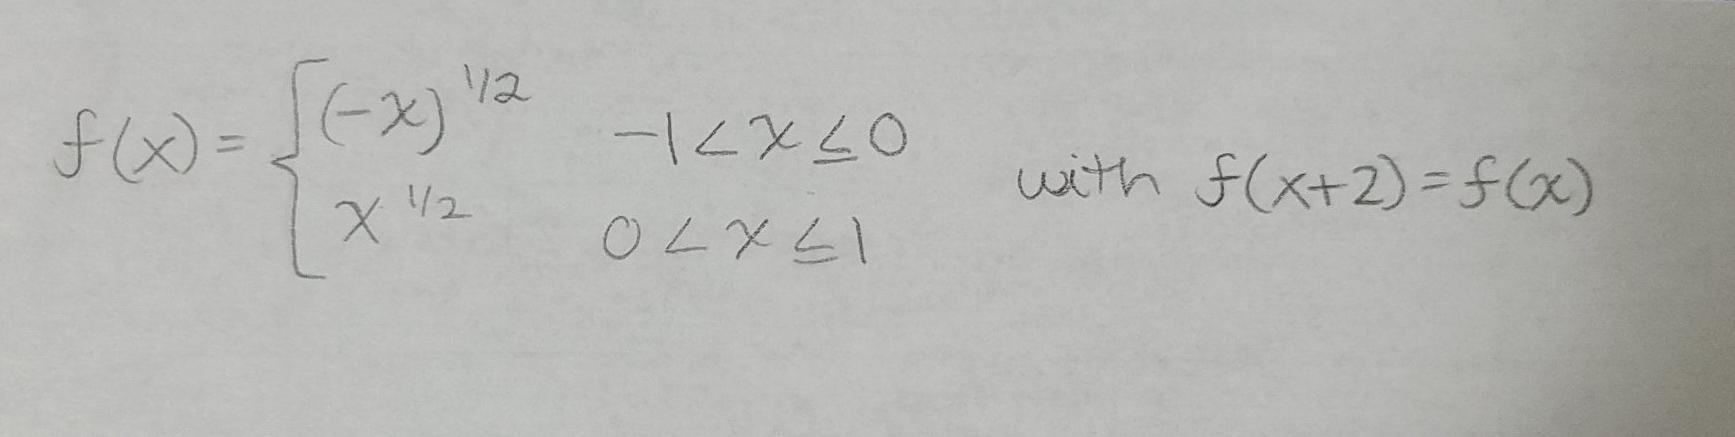 f(x) = { (-x)^{1/2} -1 < x ≤ 0
x^{1/2} 0 < x ≤ 1 with f(x+2) = f(x)